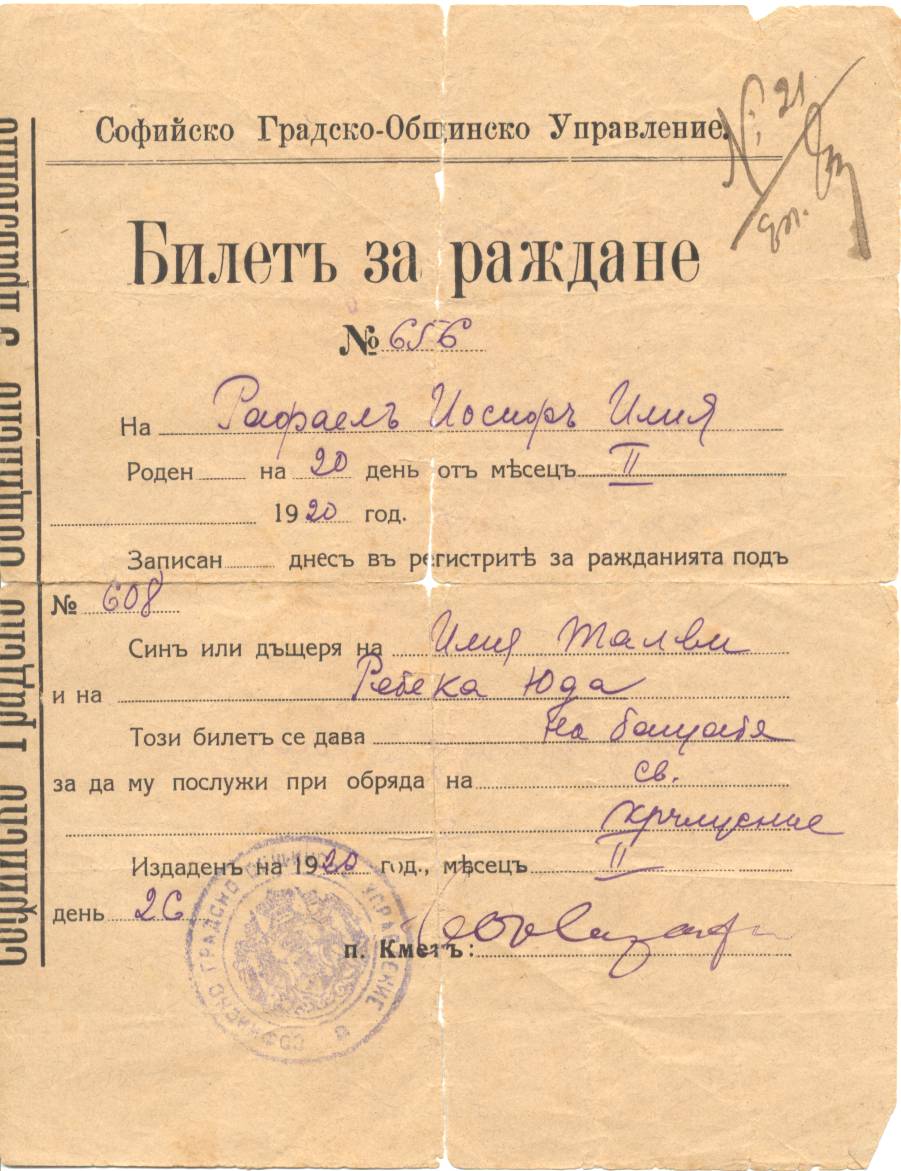 Софийско Градско-Общинско Управление.
№ 21
Билетъ за раждане
№ 656
На Рафаелъ Иосифъ Илия
Роден на 20 день отъ мѣсецъ II
1920 год.
Записан днесъ въ регистритѣ за ражданията подъ
№ 608
Синъ или дъщеря на Илия Талви
и на Ребека Юда
Този билетъ се дава на бащата
за да му послужи при обряда на св.
кръщение
Издаденъ на 1920 год., мѣсецъ II
день 26
п. Кметъ:
СОФИЙСКО ГРАДСКО ОБЩИНСКО УПРАВЛЕНИЕ
Софийско Градско Общинско Управление